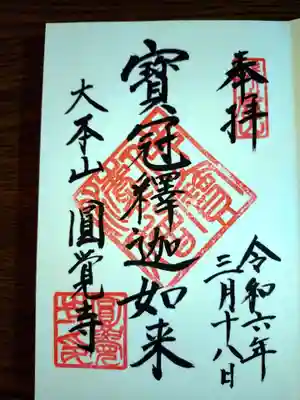 奉拝
令和六年
三月十八日
寶冠釋迦如来
大本山圓覚寺